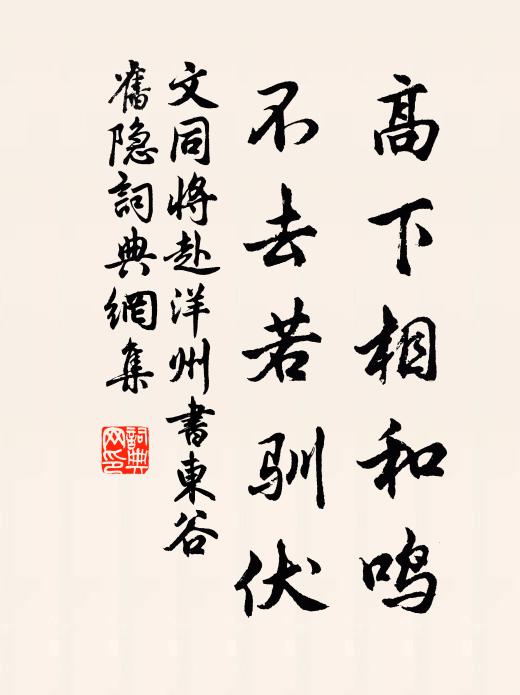 高下相和鸣
不去若驯伏
文同將赴洋州書東谷
舊隐詞典網集
詞典網印